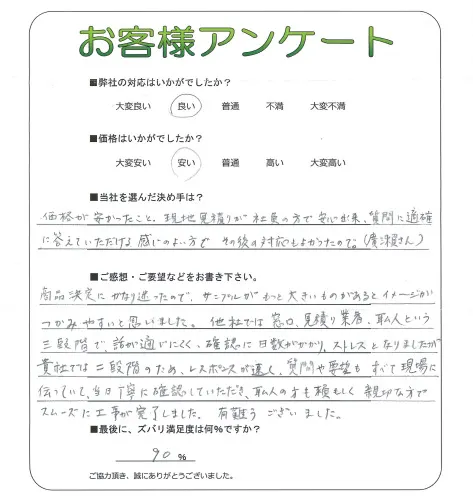 お客様アンケート
■弊社の対応はいかがでしたか？
大変良い　良い　普通　不満　大変不満
■価格はいかがでしたか？
大変安い　安い　普通　高い　大変高い
■当社を選んだ決め手は？
価格が安かったこと、現地見積りが社員の方で安心出来、質問に適確
に答えていただける感じのよい方でその後の対応もよかったので。(廣瀬さん)
■ご感想・ご要望などをお書き下さい。
商品決定にかなり迷ったので、サンプルがもっと大きいものがあるとイメージが
つかみやすいと思いました。他社では窓口、見積り業者、職人という
三段階で、話が通じにくく、確認に日数がかかり、ストレスとなりましたが
貴社では二段階のため、レスポンスが速く、質問や要望もすべて現場に
伝っていて、当日丁寧に確認していただき、職人の方も頼もしく親切な方で
スムーズに工事が完了しました。有難うございました。
■最後に、ズバリ満足度は何%ですか？
90 %
ご協力頂き、誠にありがとうございました。